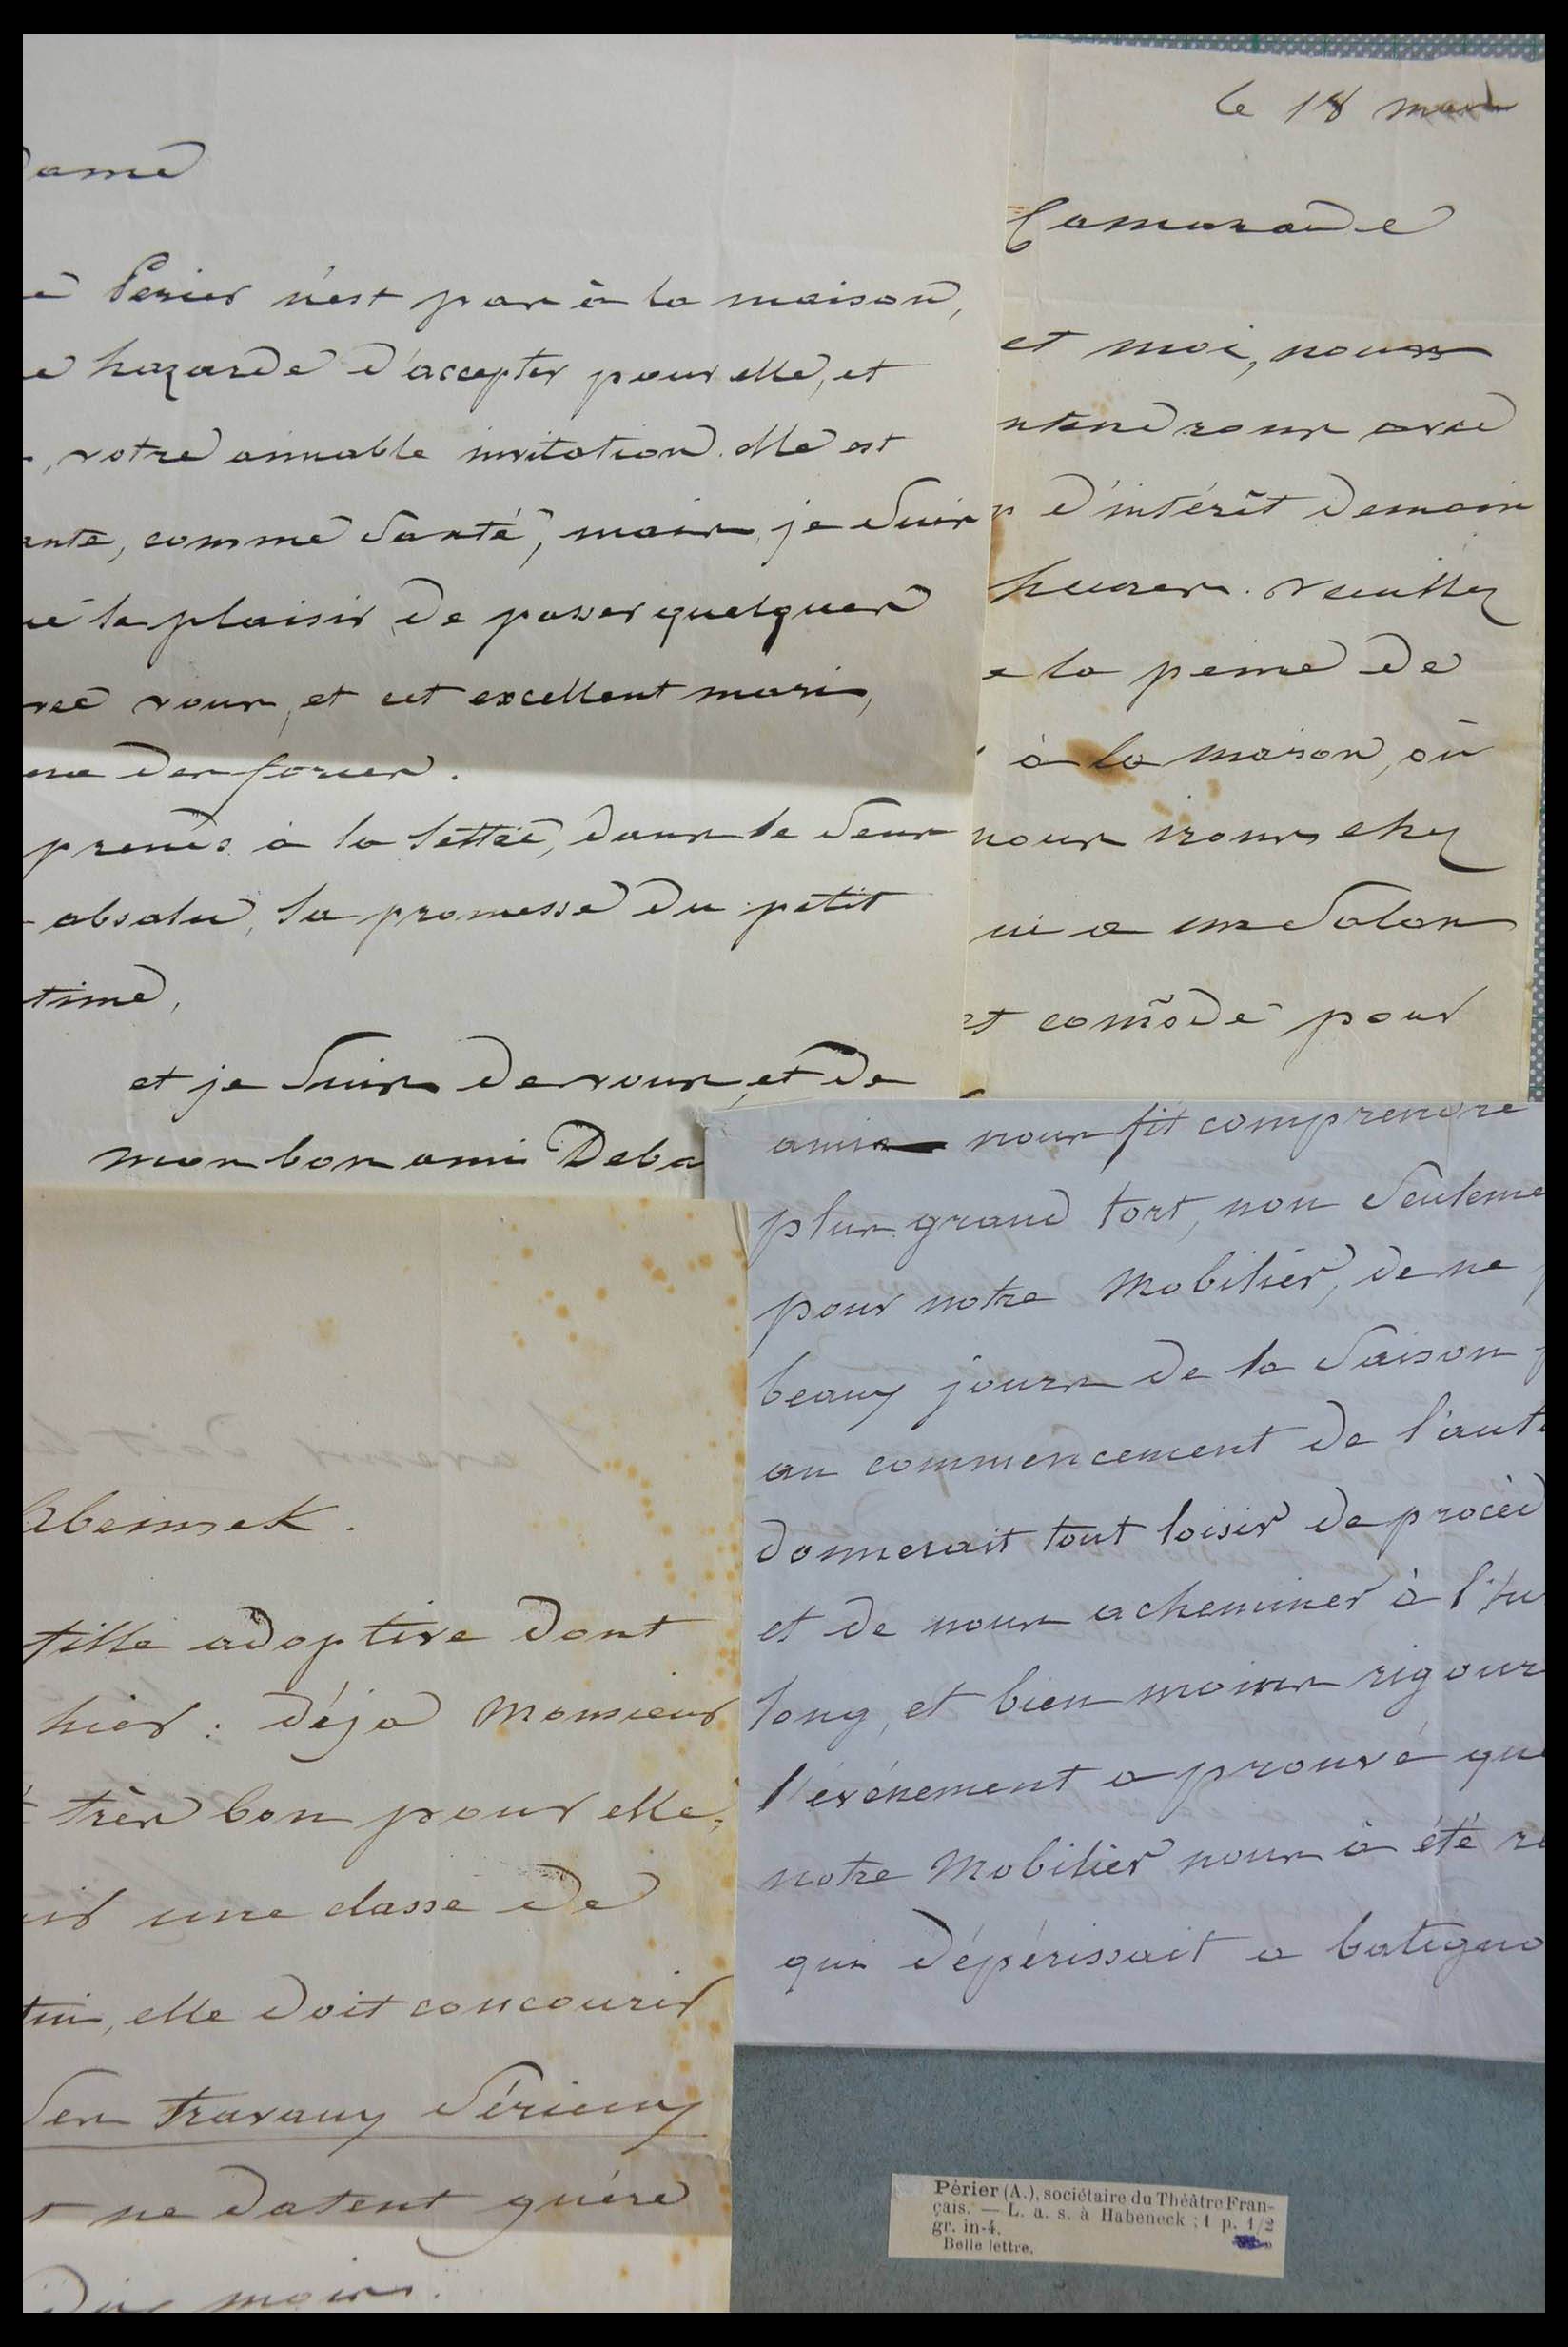 ame
Perier n'est pas à la maison,
hazarde d'accepter pour elle, et
votre aimable invitation. elle est
ante, comme Santé, mais, je Suis
le plaisir de passer quelques
vous, et cet excellent mari,
des forces.
prenés à la lettre, dans le Sens
absolu, la promesse du petit
time,
et je Suis de vous, et de
mon bon ami Deba
le 18 mars
Camarade
et moi, nous
ntendrons avec
d'intérêt demain
heures. veuillez
la peine de
à la maison, où
nous irons chez
ui a un Salon
et comõde pour
amis nous fit comprendre
plus grand tort, non Seuleme
pour notre Mobilier, de ne
beaux jours de la Saison
au commencement de l'auto
donnerait tout loisir de procéd
et de nous acheminer à
long, et bien moins rigour
l'événement a prouvé que
notre Mobilier nous a été re
qui dépérissait a batigno
abeinnek.
fille adoptive dont
hier : déja Monsieur
très bon pour elle;
une classe de
elle doit concourir
Ses travaux Sérieux
ne datent guére
dix mois.
Périer (A.), sociétaire du Théâtre Fran-
çais. — L. a. s. à Habeneck ; 1 p. 1/2
gr. in-4.
Belle lettre.